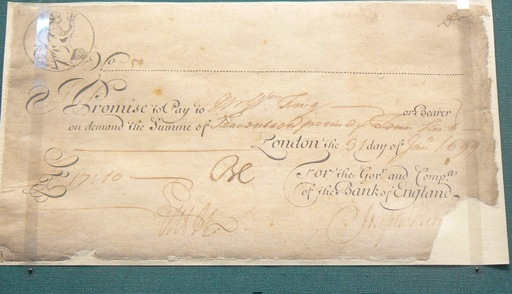 No 50
I Promise to Pay to Mr Wm King or Bearer
on demand the Summe of Seventeen pounds
London the 31 day of Jan 1699
£ 17:10
For the Govr. and Compa.
of the Bank of England